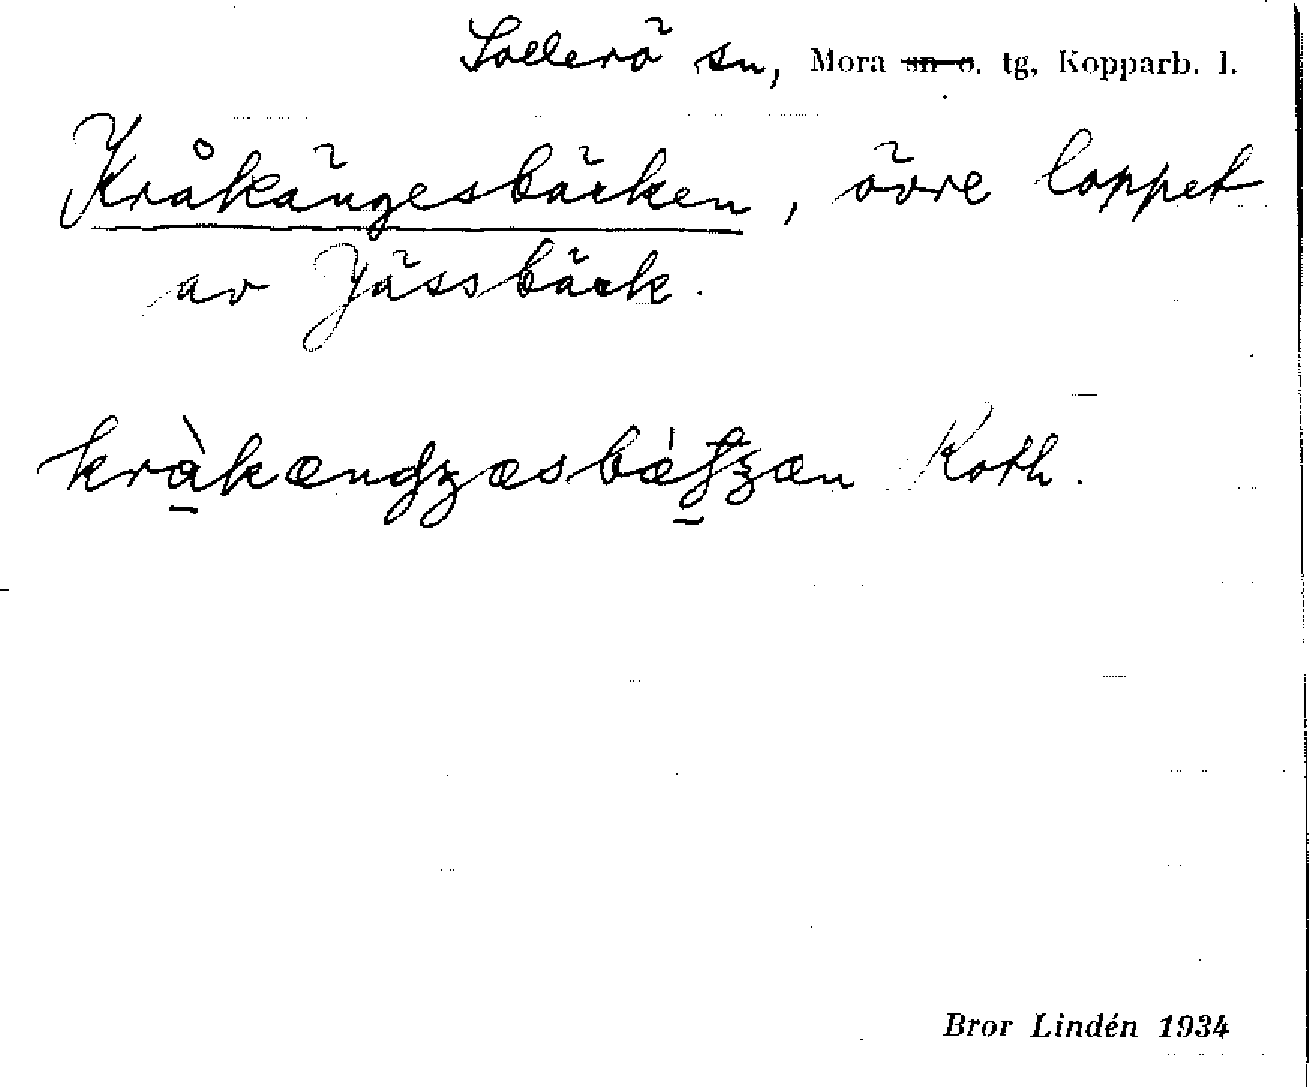 Sollerö sn, Mora sn o. tg, Kopparb. l.
Kråkängesbäcken, övre loppet
av Jässbäck.
Koth.
Bror Lindén 1934